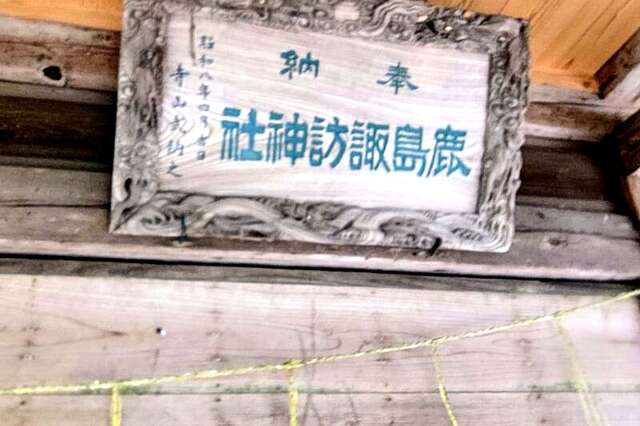 奉納
鹿島諏訪神社
昭和八年四月吉日